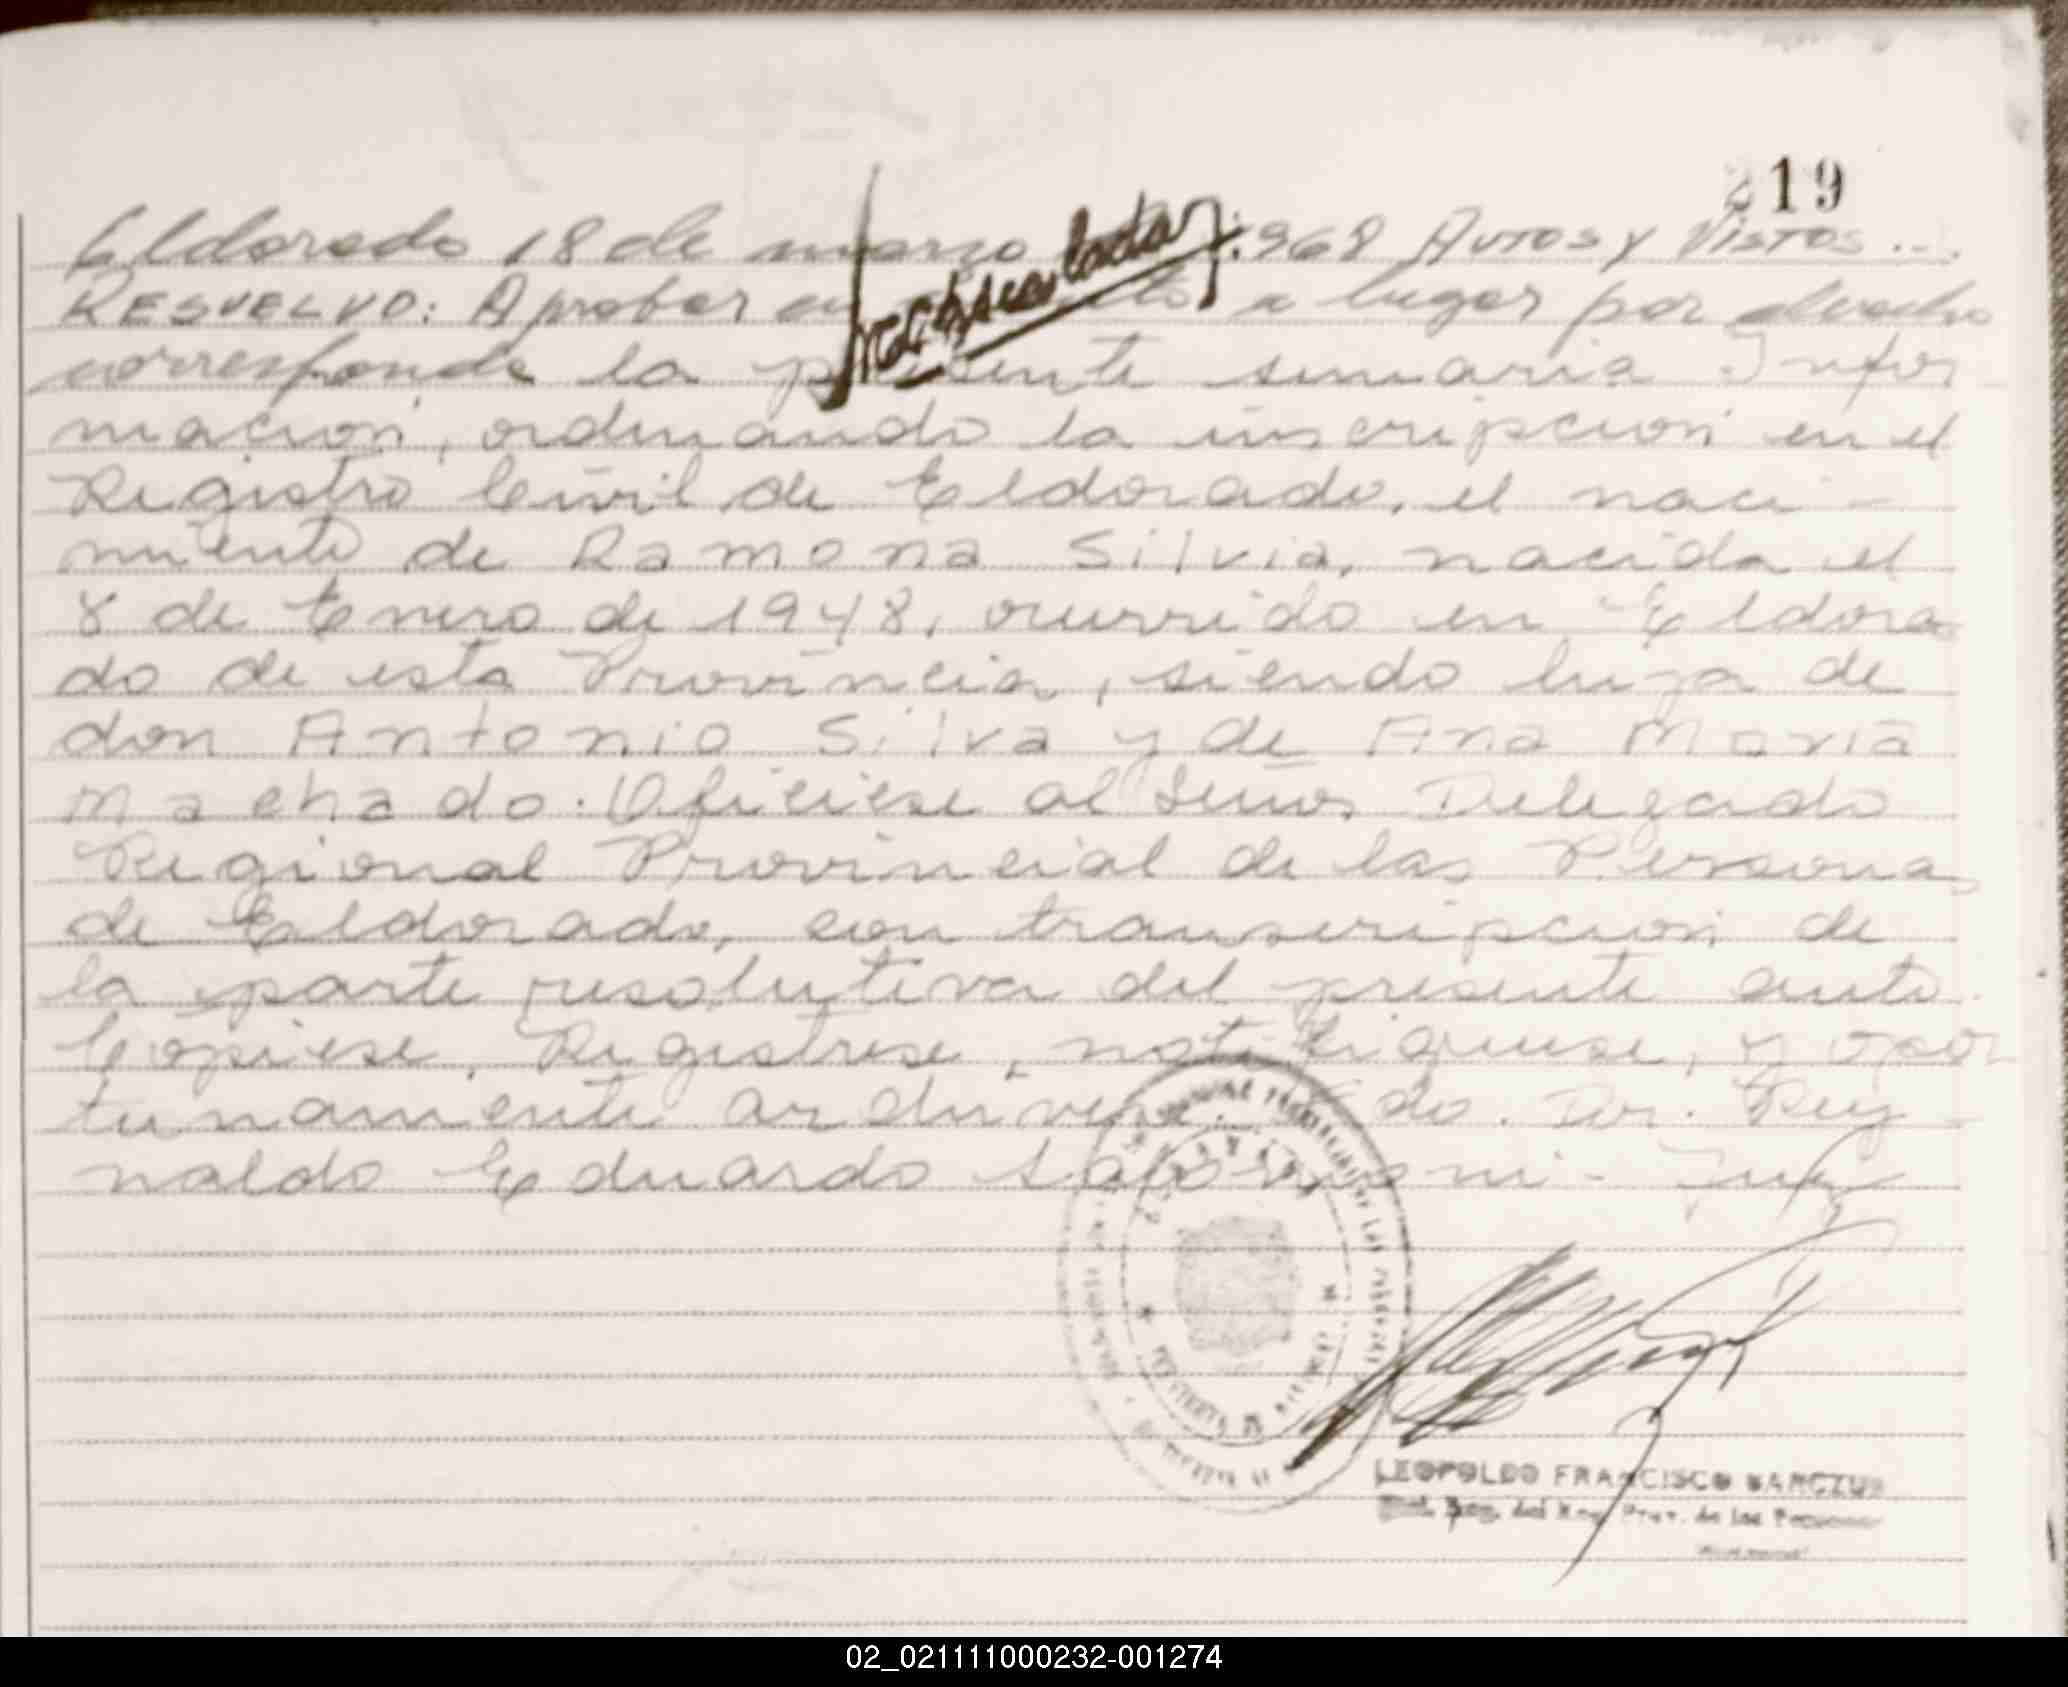 219
Eldorado 18 de marzo 1.968 AUTOS Y VISTOS...
RESUELVO: Aprobar en cuanto a lugar por derecho
corresponde la presente sumaria Infor
macion, ordenando la inscripcion en el
Registro Civil de Eldorado, el naci-
miento de Ramona Silvia, nacida el
8 de Enero de 1948, ocurrido en Eldora
do de esta Provincia, siendo hija de
don Antonio Silva y de Ana Maria
Machado. Oficiese al Señor Delegado
Regional Provincial de las Personas
de Eldorado, con transcripcion de
la parte resolutiva del presente auto
Copiese, Registrese, notifiquese, y opor
tunamente archivese. Fdo. Dr. Rey
naldo Eduardo - Juez
LEOPOLDO FRANCISCO
Reg. del Reg. Prov. de las Personas
02_021111000232-001274